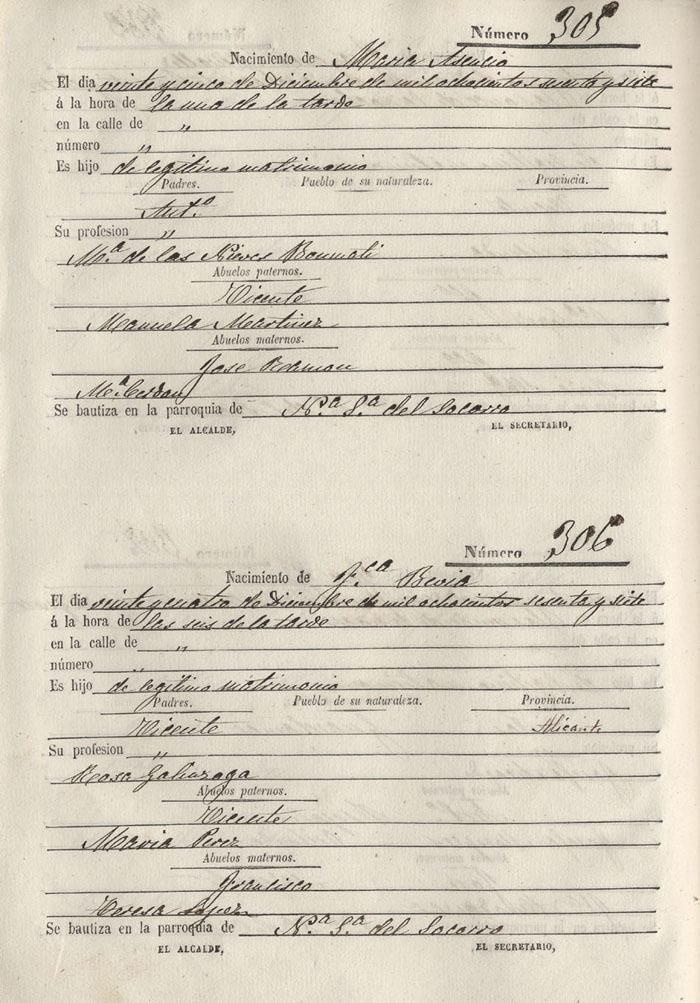 Número 305
Nacimiento de Maria Asencio
El dia veinte y cinco de Diciembre de mil ochocientos sesenta y siete
á la hora de la una de la tarde
en la calle de „
número „
Es hijo de legitimo matrimonio
Padres. Pueblo de su naturaleza. Provincia.
Ant.º
Su profesion „
M.ª de las Nieves Boumati
Abuelos paternos.
Vicente
Manuela Martinez
Abuelos maternos.
Jose
M.ª Cerdan
Se bautiza en la parroquia de N.ª S.ª del Socorro
EL ALCALDE, EL SECRETARIO,
Número 306
Nacimiento de F.ca Bevia
El dia veinte y cuatro de Diciembre de mil ochocientos sesenta y siete
á la hora de las seis de la tarde
en la calle de „
número „
Es hijo de legitimo matrimonio
Padres. Pueblo de su naturaleza. Provincia.
Vicente Alicante
Su profesion „
Rosa
Abuelos paternos.
Vicente
Maria Perez
Abuelos maternos.
Francisco
Teresa Lopez
Se bautiza en la parroquia de N.ª S.ª del Socorro
EL ALCALDE, EL SECRETARIO,